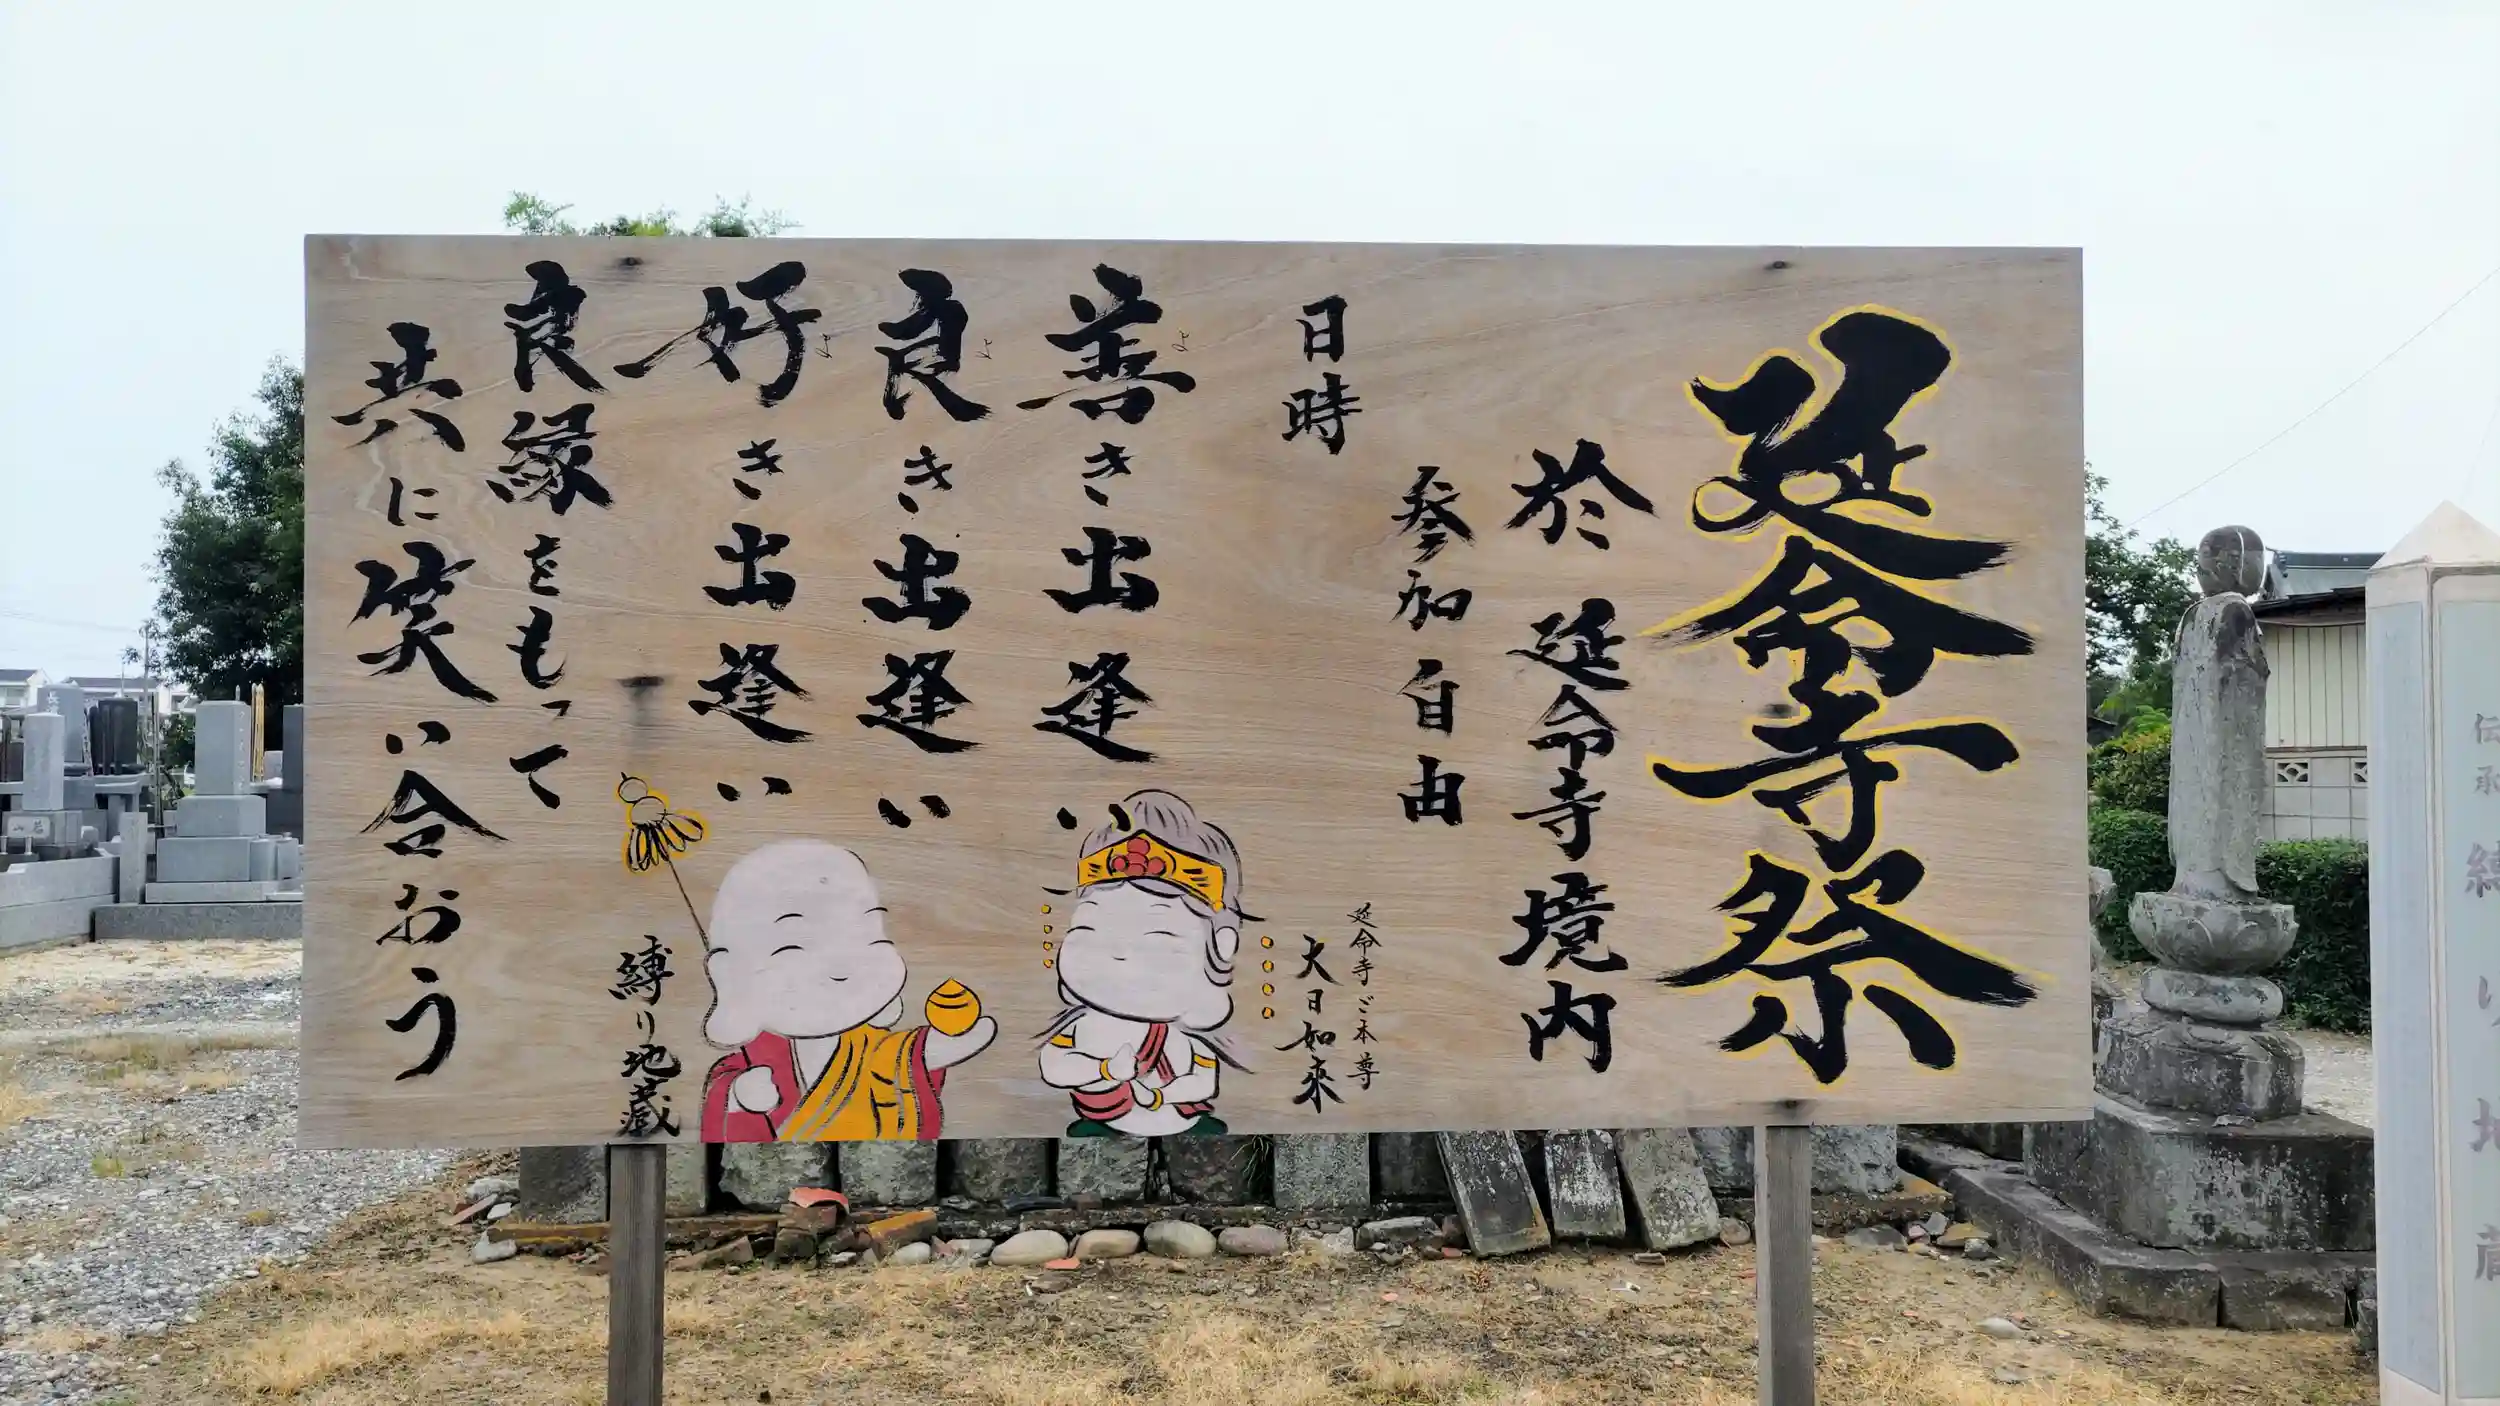 延命寺祭
於 延命寺境内
参加自由
日時
善き出逢い
よ
良き出逢い
よ
好き出逢い
よ
良縁をもって
共に笑い合おう
延命寺ご本尊
大日如来
縛り地蔵
伝承 縛り地蔵